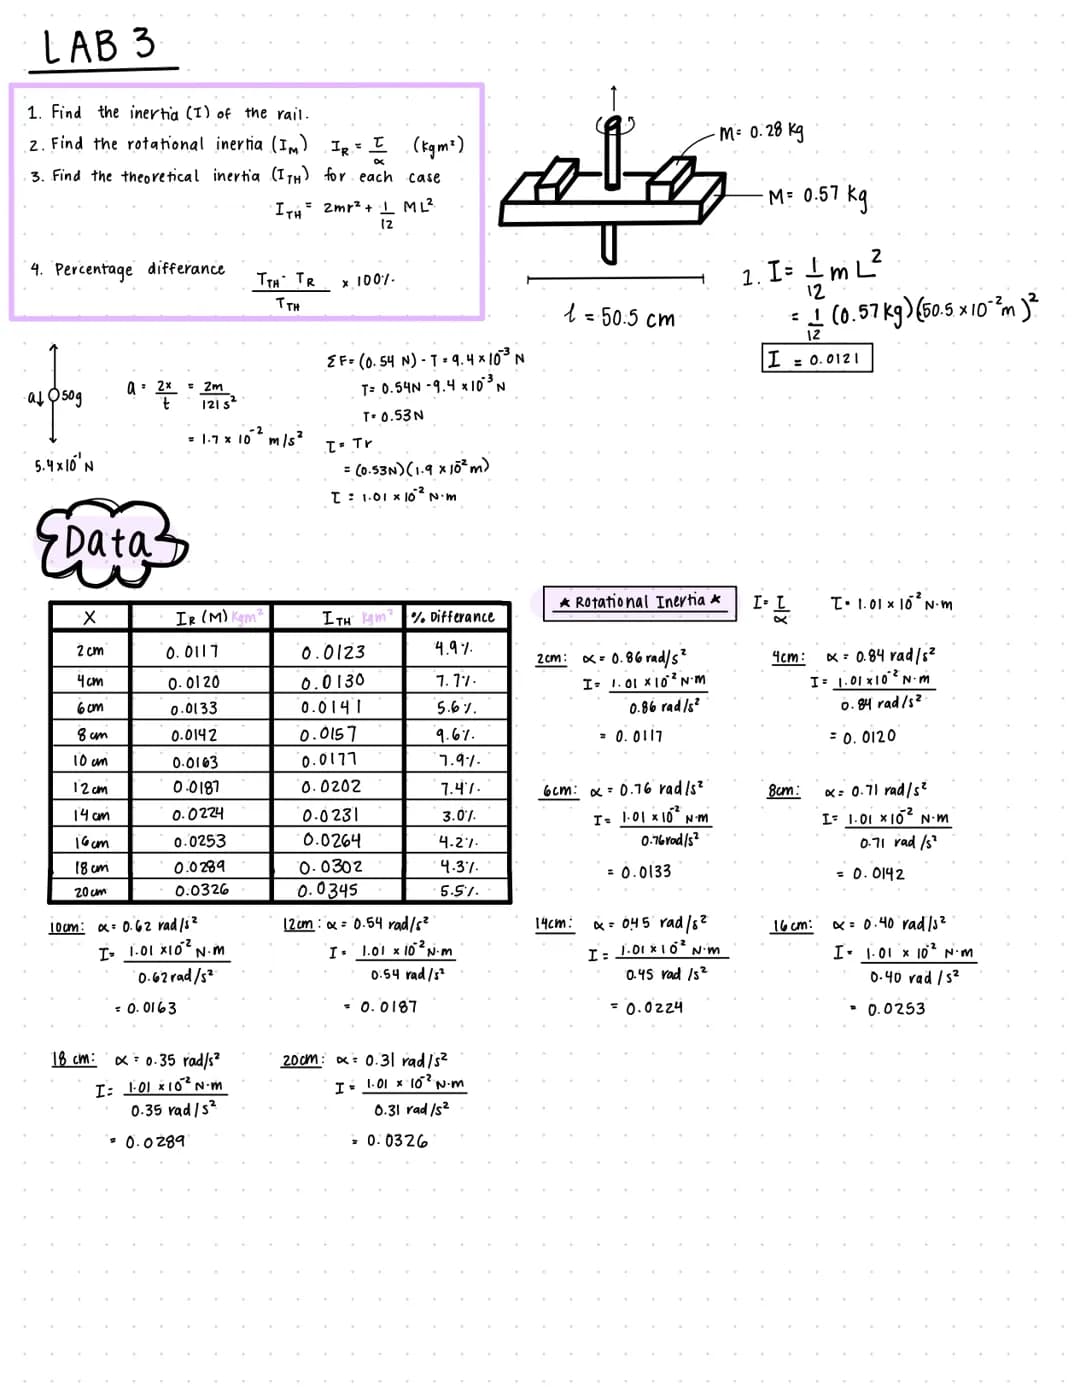 LAB 3
1. Find the inertia (I) of the rail.
2. Find the rotational inertia (I_M) I_R = τ/α (kgm²)
3. Find the theoretical inertia (I_TH) for each case
I_TH = 2mr² + 1/12 ML²
4. Percentage differance (T_TH - T_R)/T_TH × 100%
M= 0.28 kg
M= 0.57 kg
l = 50.5 cm
1. I= 1/12 mL²
= 1/12 (0.57kg)(50.5 × 10⁻²m)²
I = 0.0121
a↓ 50g
5.4×10⁻¹ N
a = 2x/t = 2m/121 s²
= 1.7 × 10⁻² m/s²
ΣF= (0.54 N) - T = 9.4 × 10⁻³ N
T= 0.54N - 9.4 × 10⁻³ N
T= 0.53N
τ= Tr
= (0.53N)(1.9 × 10⁻² m)
τ = 1.01 × 10⁻² N·m
Data
X I_R (M) kgm² I_TH kgm² % Differance
2cm 0.0117 0.0123 4.9%
4cm 0.0120 0.0130 7.7%
6cm 0.0133 0.0141 5.6%
8cm 0.0142 0.0157 9.6%
10 cm 0.0163 0.0177 7.9%
12cm 0.0187 0.0202 7.4%
14cm 0.0224 0.0231 3.0%
16cm 0.0253 0.0264 4.2%
18cm 0.0289 0.0302 4.3%
20cm 0.0326 0.0345 5.5%
★ Rotational Inertia ★ I= τ/α τ= 1.01 × 10⁻² N·m
2cm: α= 0.86 rad/s²
I= 1.01 × 10⁻² N·m
0.86 rad/s²
= 0.0117
4cm: α = 0.84 rad/s²
I= 1.01 × 10⁻² N·m
0.84 rad/s²
= 0.0120
6cm: α = 0.76 rad/s²
I= 1.01 × 10⁻² N·m
0.76rad/s²
= 0.0133
8cm: α= 0.71 rad/s²
I= 1.01 × 10⁻² N·m
0.71 rad/s²
= 0.0142
10cm: α= 0.62 rad/s²
I= 1.01 × 10⁻² N·m
0.62rad/s²
= 0.0163
12cm: α= 0.54 rad/s²
I= 1.01 × 10⁻² N·m
0.54 rad/s²
= 0.0187
14cm: α = 0.45 rad/s²
I= 1.01 × 10⁻² N·m
0.45 rad/s²
= 0.0224
16cm: α= 0.40 rad/s²
I= 1.01 × 10⁻² N·m
0.40 rad/s²
= 0.0253
18 cm: α = 0.35 rad/s²
I= 1.01 × 10⁻² N·m
0.35 rad/s²
= 0.0289
20cm: α= 0.31 rad/s²
I= 1.01 × 10⁻² N·m
0.31 rad/s²
= 0.0326